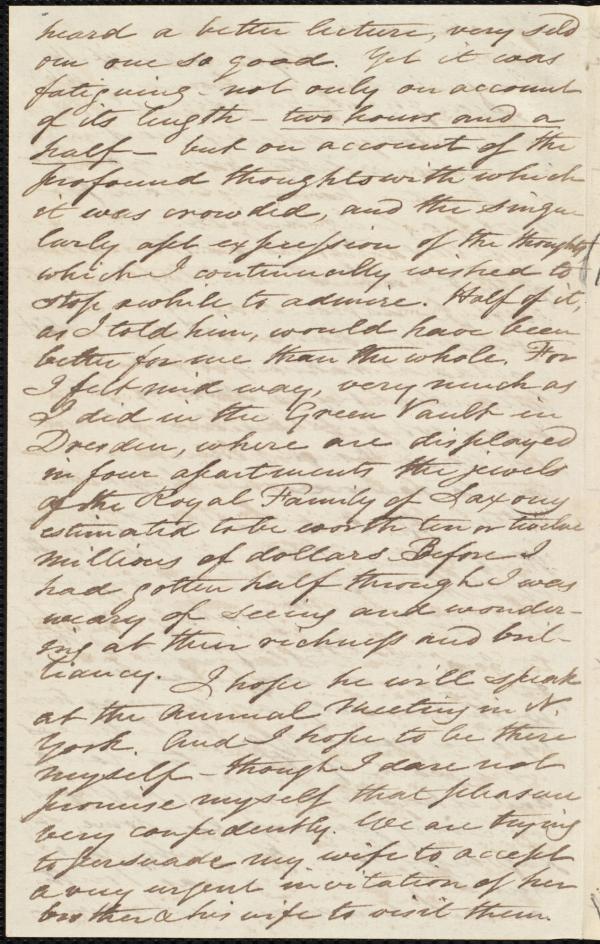 heard a better lecture, very seld
om one so good. Yet it was
fatiguing - not only on account
of its length - two hours and a
half - but on account of the
profound thoughts with which
it was crowded, and the singu-
larly apt expression of the thoughts
which I continually wished to
stop awhile to admire. Half of it,
as I told him, would have been
better for me than the whole. For
I felt mid way, very much as
I did in the Green Vault in
Dresden, where are displayed
in four apartments the jewels
of the Royal Family of Saxony
estimated to be worth ten or twelve
millions of dollars. Before I
had gotten half through I was
weary of seeing and wonder-
ing at their richness and bril-
liancy. I hope he will speak
at the Annual Meeting in N.
York. And I hope to be there
myself - though I dare not
promise myself that pleasure
very confidently. We are trying
to persuade my wife to accept
a very urgent invitation of her
brother & his wife to visit them.